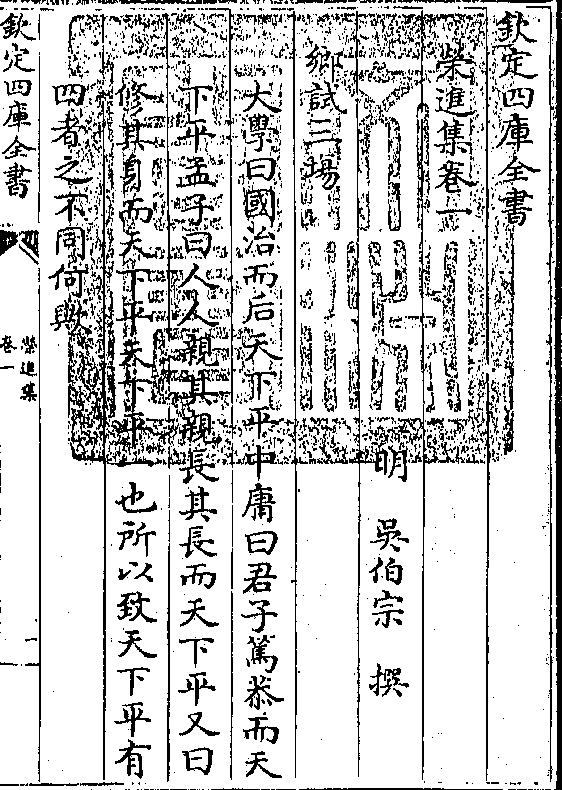 欽定四庫全書
榮進集卷一
明 吳伯宗 撰
鄉試三場
大學曰國治而后天下平中庸曰君子篤恭而天
下平孟子曰人人親其親長其長而天下平又曰
修其身而天下平夫下平一也所以致天下平有
四者之不同何歟
欽定四庫全書
榮進集
卷一
一